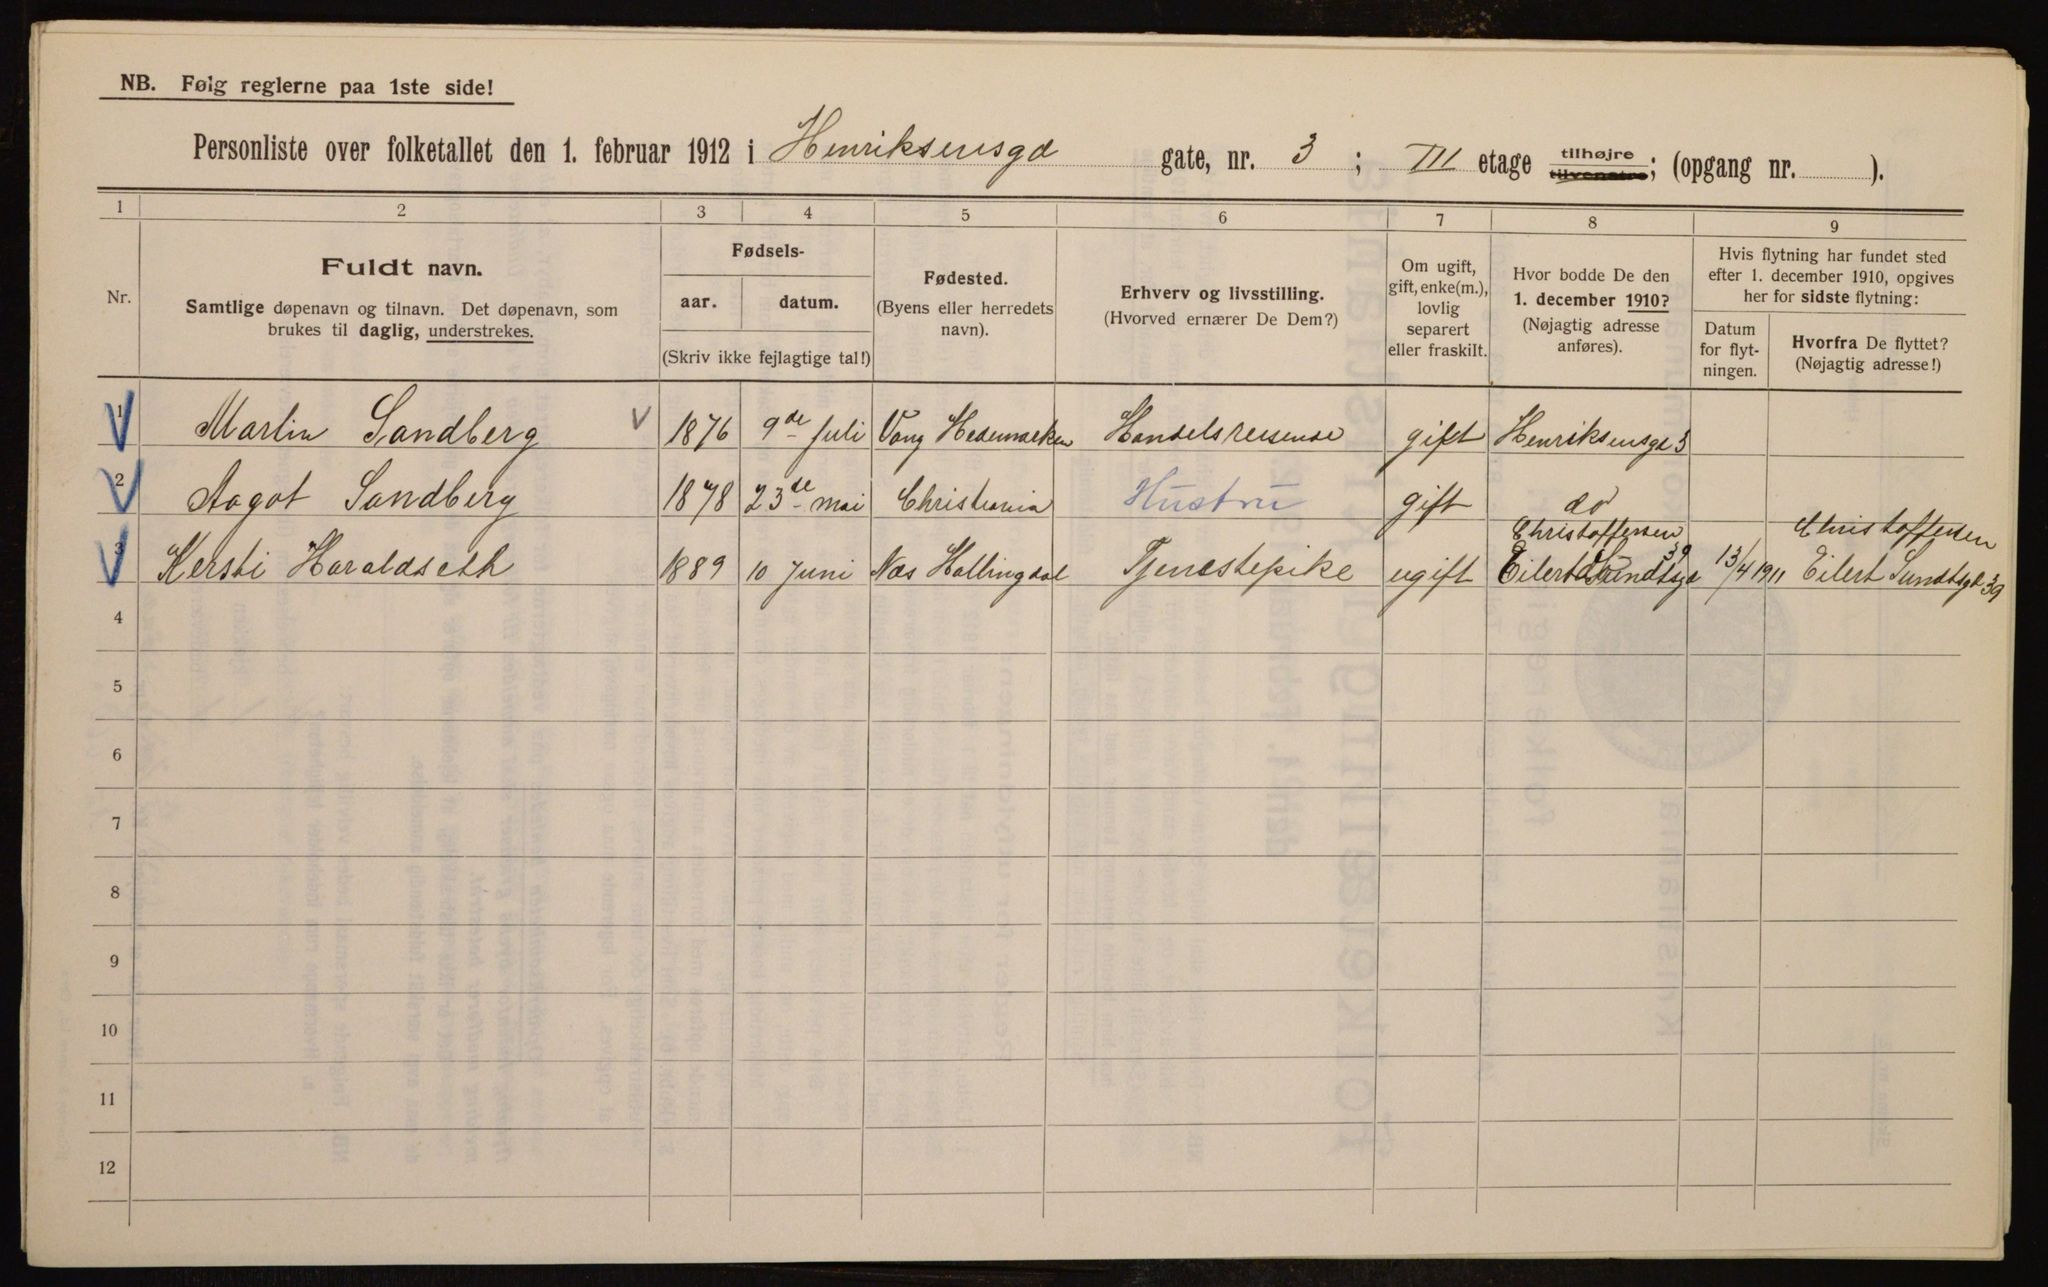 NB. Følg reglerne paa 1ste side!
Personliste over folketallet den 1. februar 1912 i Henriksensgd gate, nr. 3 ; III etage tilhøjre tilvenstre; (opgang nr. ).
1 2 3 4 5 6 7 8 9
Nr.
Fuldt navn.
Samtlige døpenavn og tilnavn. Det døpenavn, som
brukes til daglig, understrekes.
Fødsels-
aar. datum.
(Skriv ikke fejlagtige tal!)
Fødested.
(Byens eller herredets
navn).
Erhverv og livsstilling.
(Hvorved ernærer De Dem?)
Om ugift,
gift, enke(m.),
lovlig
separert
eller fraskilt.
Hvor bodde De den
1. december 1910?
(Nøjagtig adresse
anføres).
Hvis flytning har fundet sted
efter 1. december 1910, opgives
her for sidste flytning:
Datum
for flyt-
ningen.
Hvorfra De flyttet?
(Nøjagtig adresse!)
1 Martin Sandberg 1876 9de Juli Vang Hedemarken Handelsreisende gift Henriksensgd 3
2 Aagot Sandberg 1878 23de mai Christiania Hustru gift do
3 Kersti Haraldseth 1889 10 Juni Næs Hallingdal Tjenestepike ugift Christoffersen Eilert Sundtsgd 39 13/4 1911 Christoffersen Eilert Sundtsgd 39
4
5
6
7
8
9
10
11
12